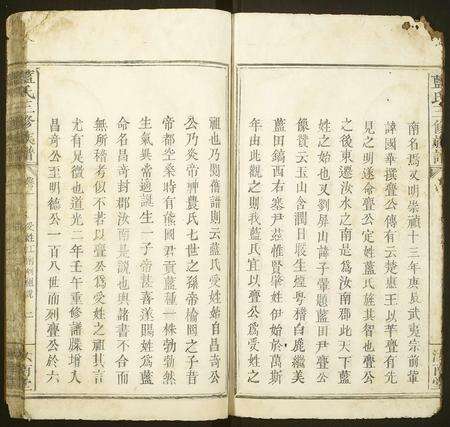 南名焉又明崇禎十三年庚辰武夷宗前輩
諱國華撰𤲞公傳有云楚惠王以𤲞有先
見之明遂命𤲞公定姓藍氏旌其智也𤲞公
之後東遷汝水之南是為汝南郡此天下藍
姓之始也又劉屏山諱子翬題藍田尹𤲞公
像贊云玉山含潤日毓生煙粵稽白鹿繼美
藍田鎬西右塞尹茲惟賢肇姓伊始於萬斯
年由此觀之則我藍氏宜以𤲞公為受姓之
祖也乃閱舊譜則云藍氏受姓始自昌奇公
公乃炎帝神農氏七世之孫帝榆罔之子昔
帝都空桑時有熊國君貢藍種一株勃勃然
生氣異常適誕生一子帝甚喜遂賜姓為藍
命名昌奇封郡汝南是說也與諸書不合而
無所稽考似不若以𤲞公為受姓之祖其言
尤有足徵也道光二年壬午重修譜牒增入
昌奇公至明德公一百八世前列𤲞公於六
藍氏三修族譜
受姓
二
汝南堂